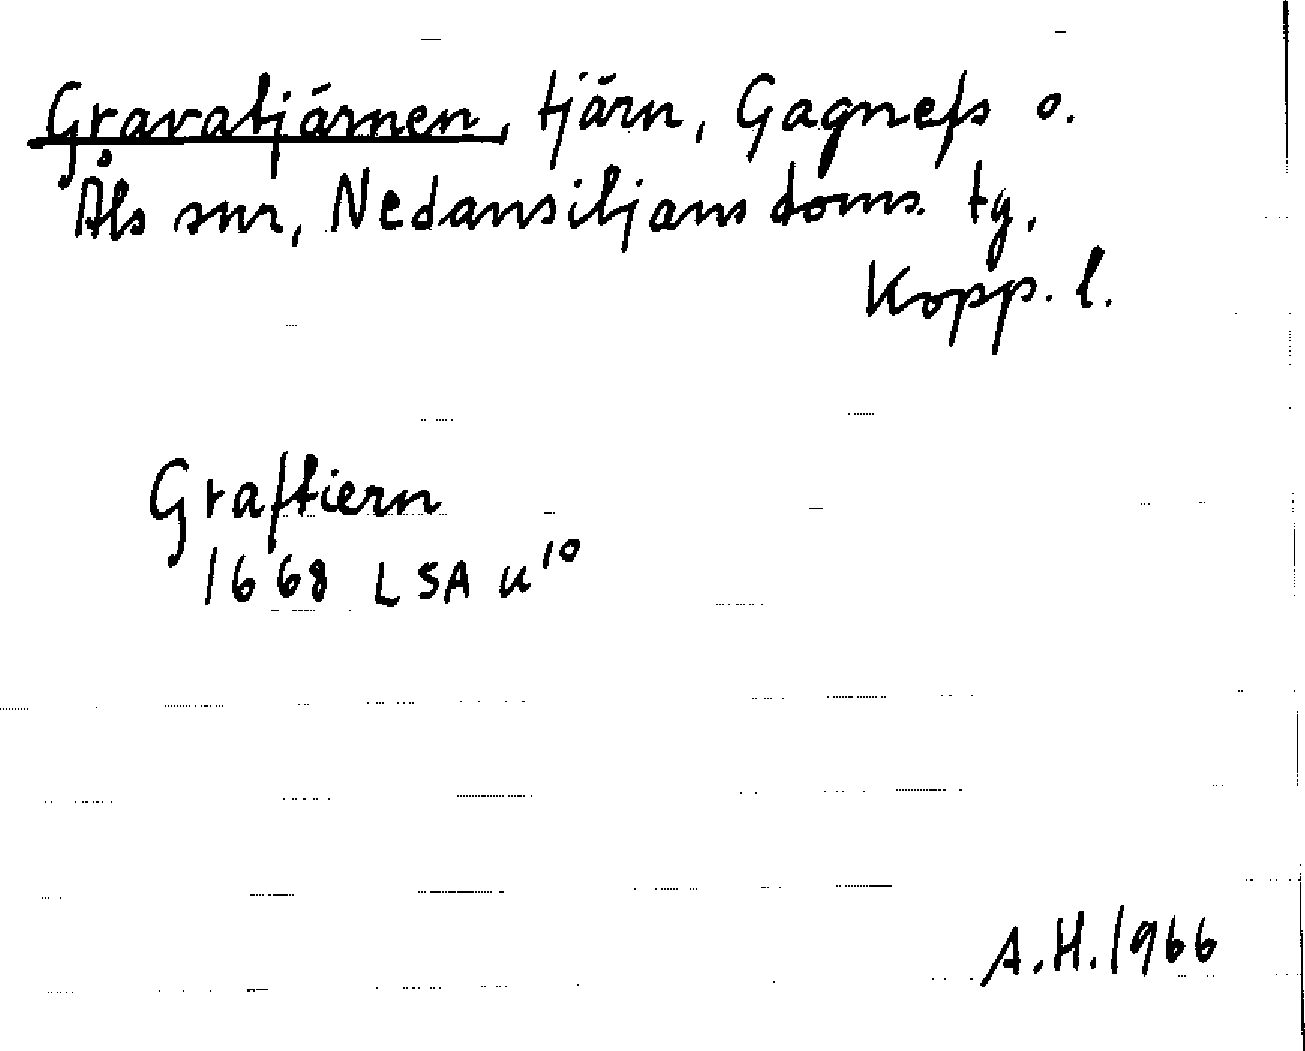 Gravatjärnen, tjärn, Gagnefs o.
Åls snr, Nedansiljans doms. tg,
Kopp. l.
Graftiern
1668 LSA U¹⁰
A.H. 1966